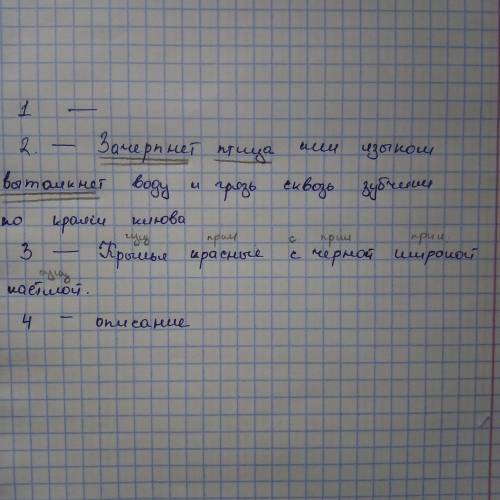 1 —
2. — Зачерпнет птица или языком
вытолкнет воду и грязь сквозь зубчики
по краям клюва
сущ прил с прил прил
3 — Крылья красные с черной широкой
сущ
каймой.
4 — описание